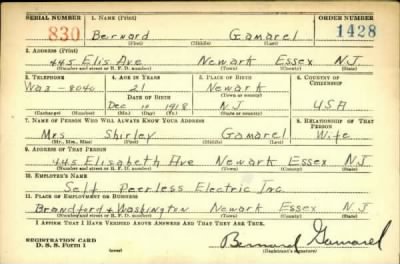 SERIAL NUMBER 1. NAME (Print) ORDER NUMBER
830 Bernard Gamarel 1428
(First) (Middle) (Last)
2. ADDRESS (Print)
445 Elis. Ave Newark Essex N.J.
(Number and street or R. F. D. number) (Town) (County) (State)
3. TELEPHONE 4. AGE IN YEARS 5. PLACE OF BIRTH 6. COUNTRY OF CITIZENSHIP
Wa3-8040 21 Newark
DATE OF BIRTH
Dec 10 1918 N.J USA
(Exchange) (Number) (Mo.) (Day) (Yr.) (State or country)
7. NAME OF PERSON WHO WILL ALWAYS KNOW YOUR ADDRESS 8. RELATIONSHIP OF THAT PERSON
Mrs Shirley Gamarel Wife
(Mr., Mrs., Miss) (First) (Middle) (Last)
9. ADDRESS OF THAT PERSON
445 Elisabeth Ave Newark Essex N.J
(Number and street or R. F. D. number) (Town) (County) (State)
10. EMPLOYER'S NAME
Self Peerless Electric Inc.
11. PLACE OF EMPLOYMENT OR BUSINESS
Brandford & Washington Newark Essex N.J
(Number and street or R. F. D. number) (Town) (County) (State)
I AFFIRM THAT I HAVE VERIFIED ABOVE ANSWERS AND THAT THEY ARE TRUE.
REGISTRATION CARD
D. S. S. Form 1 (over) Bernard Gamarel
(Registrant's signature)